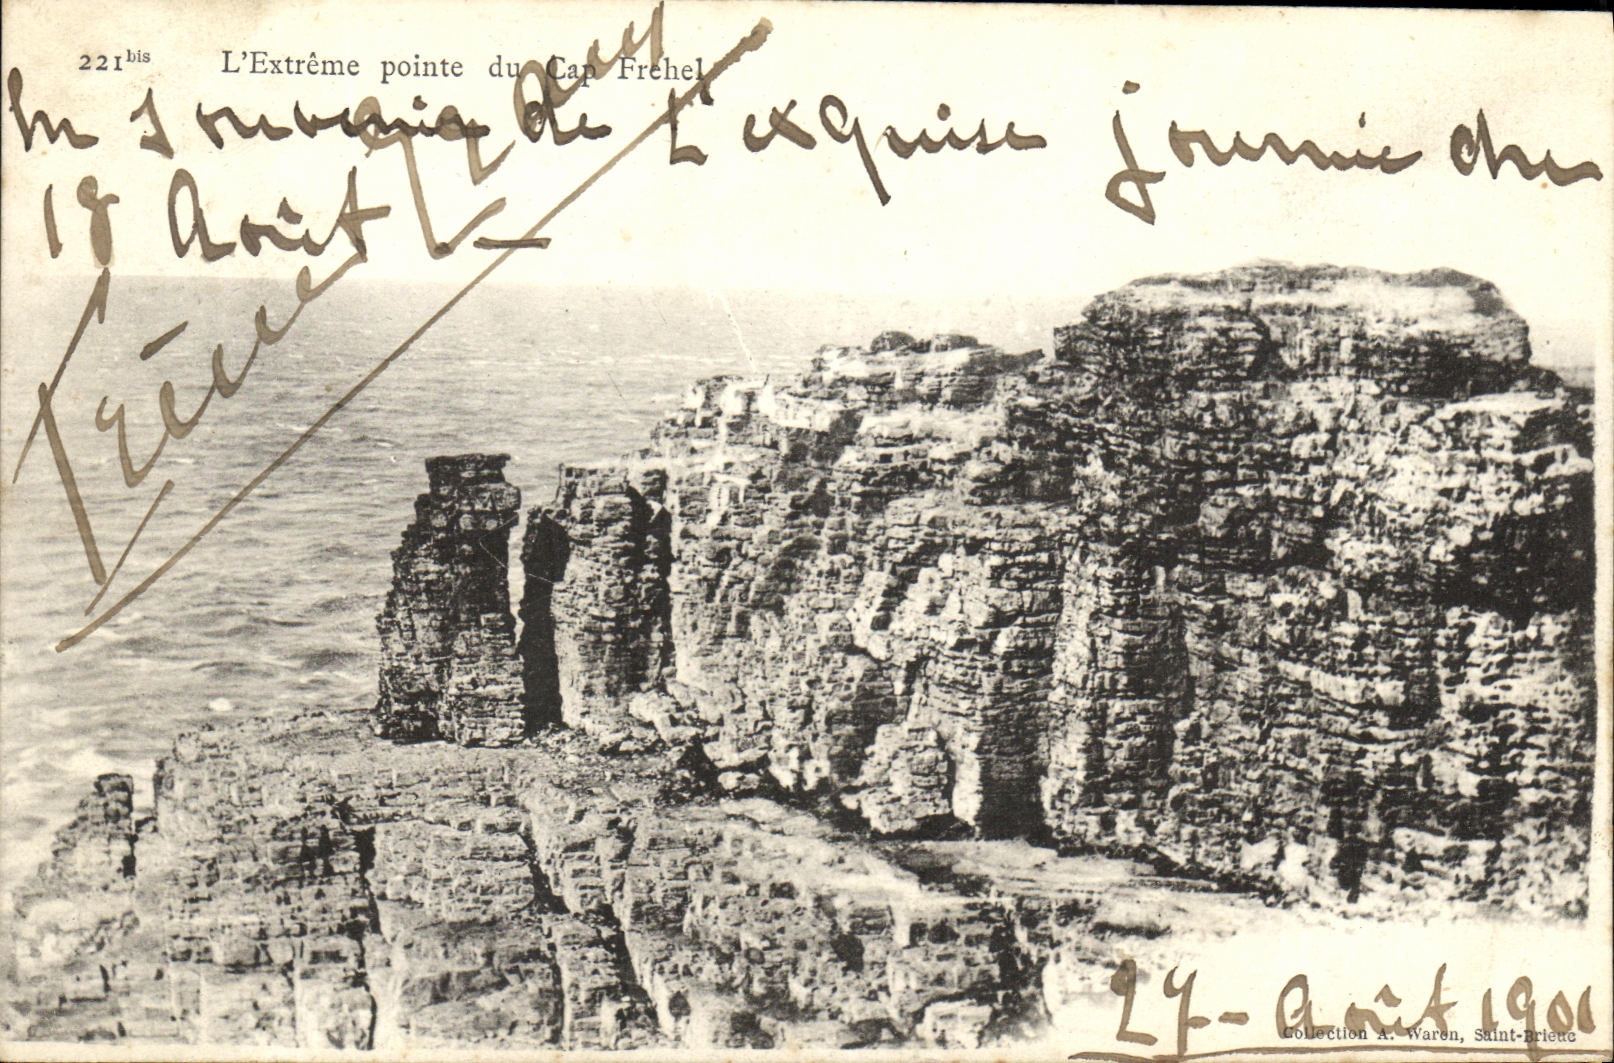 221bis L'Extrême pointe du Cap Fréhel
En souvenir de L'exquise journée du
18 Août
27 - Août 1901
Collection A. Waron, Saint-Brieuc